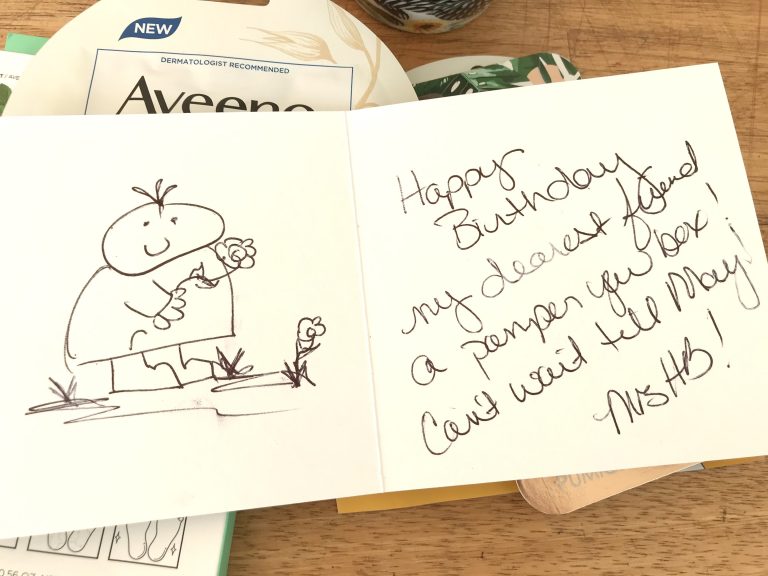 NEW
DERMATOLOGIST RECOMMENDED
Aveeno
Happy
Birthday
my dearest friend
a pamper you box!
Can't wait till May!
0.56 OZ
PUMIC